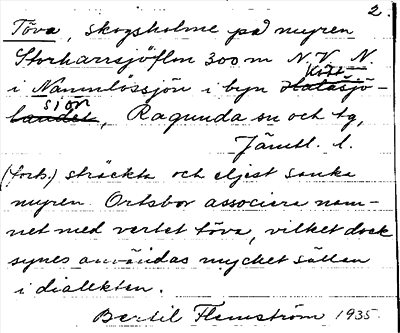 2.
Töva, skogsholme på myren
Storharrsjöflon 300 m N.V. N.
i Namnlössjön i byn Halasjö-
landet, Ragunda sn och tg,
Jämtl. l.
(fork.) sträckta och eljest sanka
myren. Ortsbor associera nam-
net med verbet töva, vilket dock
synes användas mycket sällan
i dialekten.
Bertil Flemström 1935.